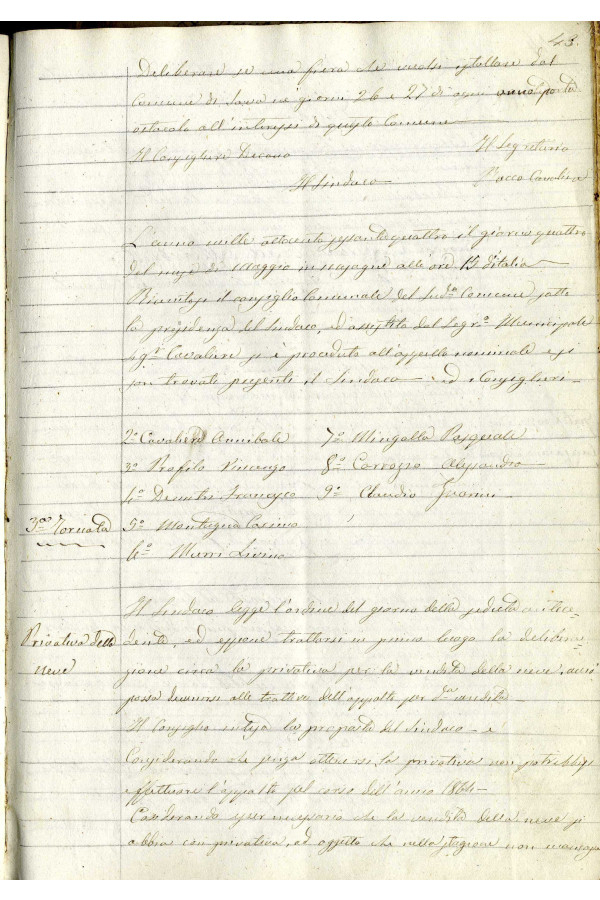 43.
Deliberare se una fiera che vuolsi istallare dal
Comune di Sava ne' giorni 26 e 27 di ogni anno porta
ostacolo all'interessi di questo Comune
Il Consigliere Decano
Il Segretario
Il Sindaco
Rocco Cavaliere
L'anno mille ottocento sessantaquattro il giorno quattro
del mese di Maggio in alle ore 15 d'Italia
Riunitosi il consiglio Comunale del sud.o Comune sotto
la presidenza del Sindaco, ed assistito dal Segr.o Municipale
sig.r Cavaliere si è proceduto all'appello nominale e si
son trovati presenti il Sindaco ed i Consiglieri
2.o Cavaliere Annibale
7.o Mingolla Pasquale
3.o Profilo Vincenzo
8.o Carrozzo Alessandro
4.o Francesco
9.o Claudio
3.a Tornata
5.o Montagna Cosimo
6.o Murri Livino
Il Sindaco legge l'ordine del giorno della seduta antece-
Privativa della
dente, ed espone trattarsi in primo luogo la delibera-
neve
zione circa la privativa per la vendita della neve,
possa devenirsi alle trattative dell'appalto per d.ta vendita
Il Consiglio intesa la proposta del Sindaco e
Considerando che senza ottenersi la privativa non potrebbesi
effettuare l'appalto pel corso dell'anno 1864
Considerando esser necessario che la vendita della neve si
abbia con privativa, ed oggetto che nella stagione non